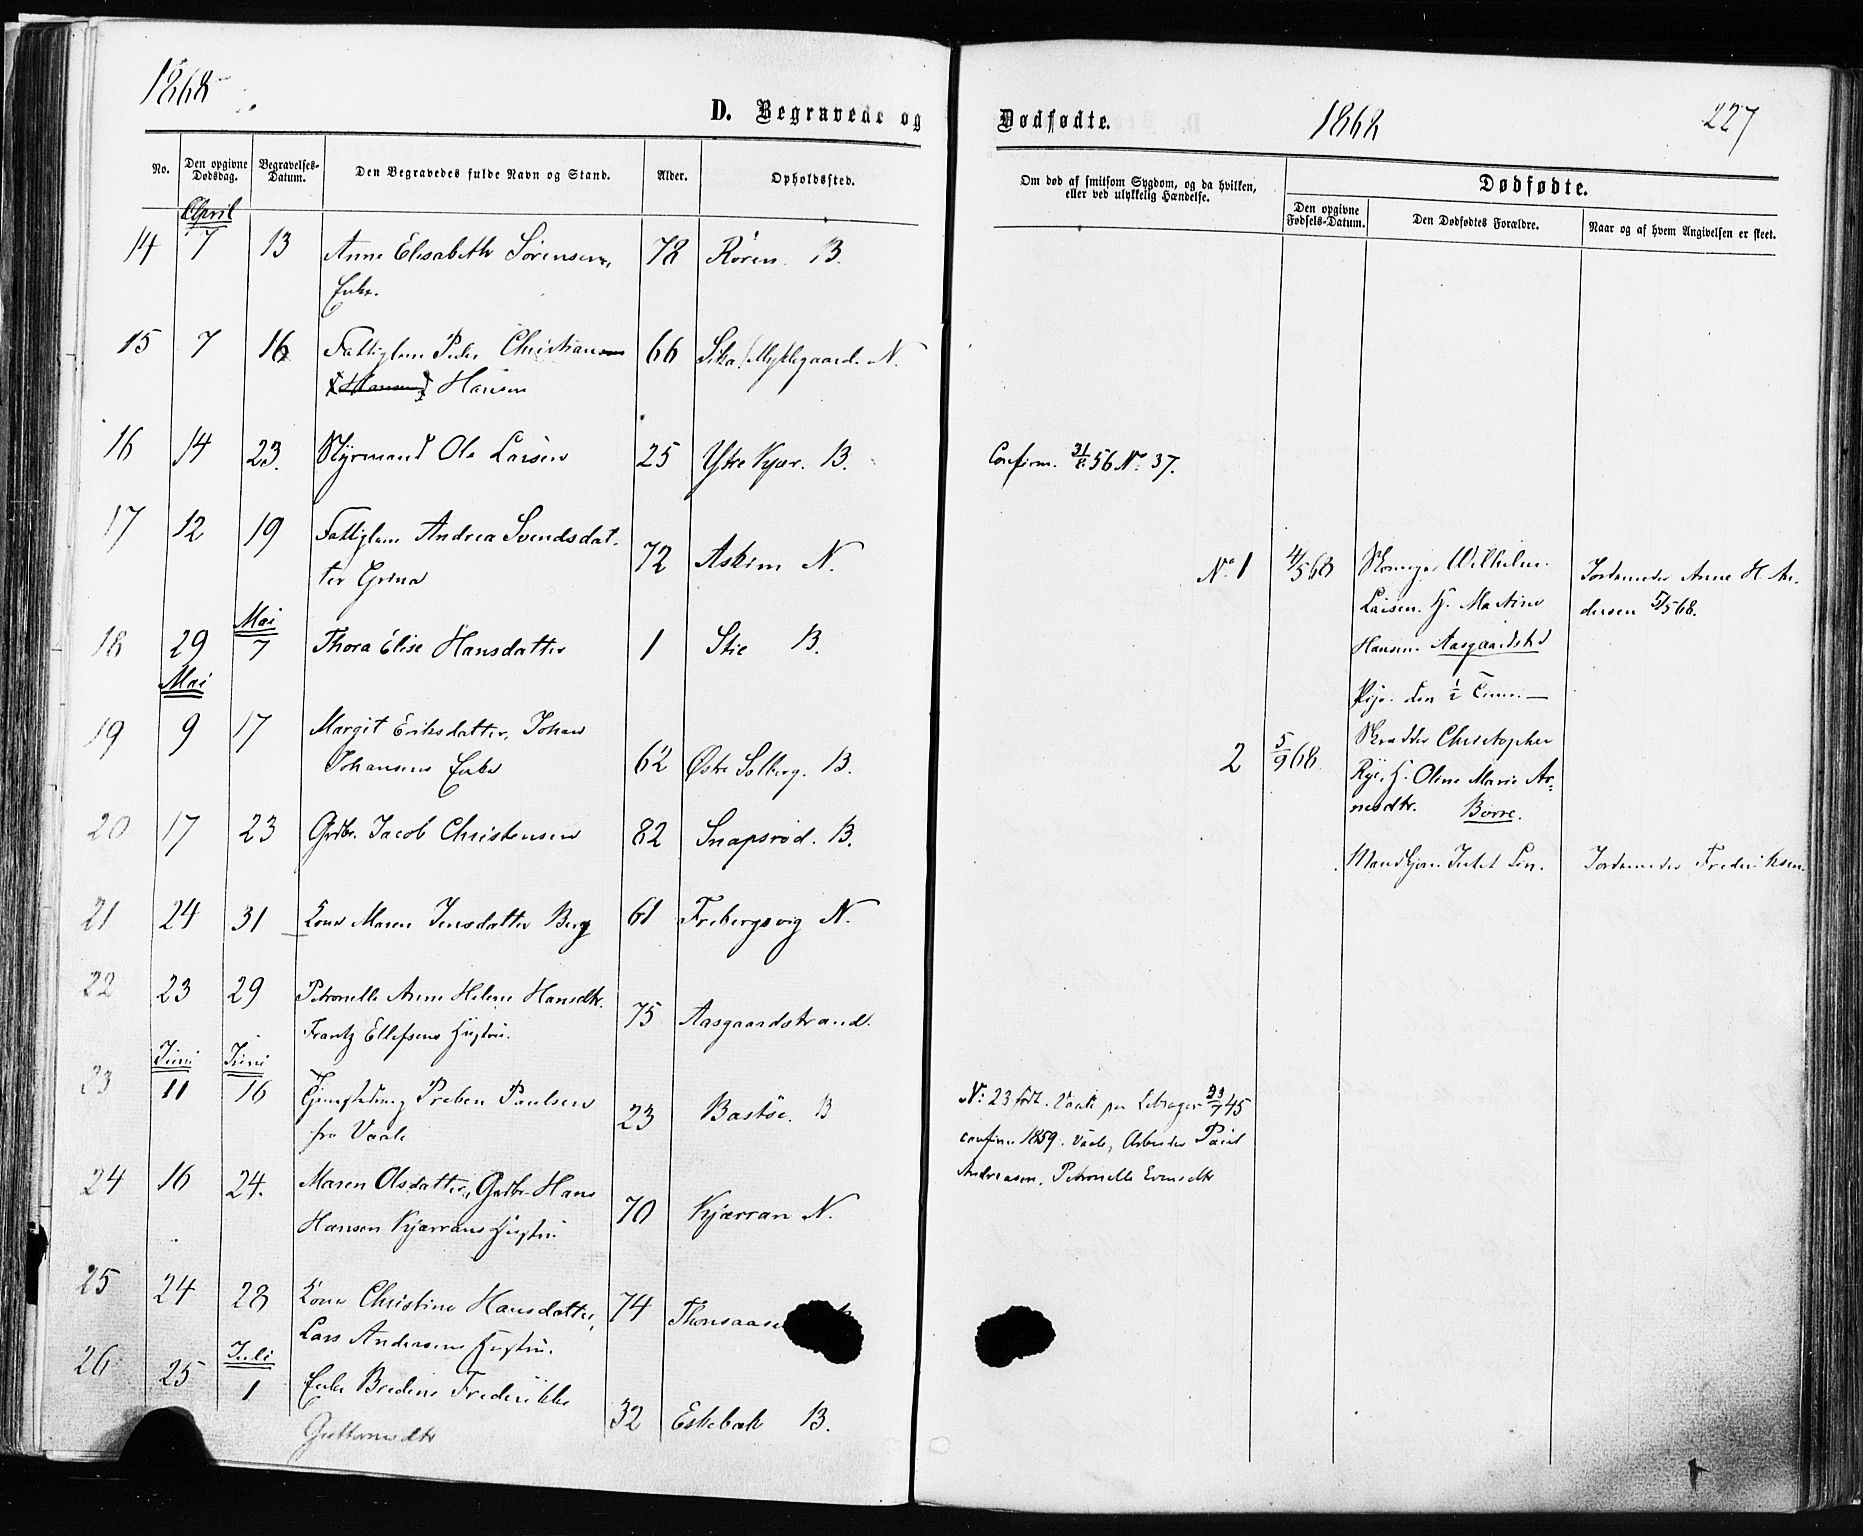 1868
D. Begravede og
No.
Den opgivne Dødsdag.
Begravelses-Datum.
Den Begravedes fulde Navn og Stand.
Alder.
Opholdssted.
April
14 7 13 Anne Elisabeth Sørensen, 78 Røren B.
Enke.
15 7 16 Fattiglem Peder Christiansen 66 Myklegaard. N.
Hansen
16 14 23. Styrmand Ole Larsen 25 Ytre Kjær. B.
17 12 19 Fattiglem Andrea Svendsdat-
ter 72 Askim N.
Mai
18 29 7 Thora Elise Hansdatter 1 Stie B.
Mai
19 9 17 Margit Eriksdatter, Johan
Johansens Enke 62 Østre Solberg. B.
20 17 23 Grdbr. Jacob Christensen 82 Snapsrød. B.
21 24 31 Kone Maren Jensdatter Berg 61 Frebergsvig N.
22 23 29 Petronelle Anne Helene Hansdtr.
Frantz Ellefsens Hustru. 75 Aasgaardstrand.
Juni Juni
23 11 16 Preben Paulsen
fra Vaale 23 Bastøe. B
24 16 24. Maren Olsdatter, Grdbr. Hans
Hansen Kjærrans Hustru 70 Kjærran N.
25 24 28 Kone Christine Hansdatter, 74
Lars Andersens Hustru.
Juli
26 25 1 Enke Bredine Frederikke
Guttormsdtr 32 Eskebæk B.
Dødfødte.
1868
227
Om død af smitsom Sygdom, og da hvilken,
eller ved ulykkelig Hændelse.
Dødfødte.
Den opgivne Fødsels-Datum.
Den Dødfødtes Forældre.
Naar og af hvem Angivelsen er skeet.
Confirm. 31/8 56 No. 37.
No. 1 4/5 68 Wilhelm
Larsen. H. Martine
Hansen Aasgaardstrd
Pige. den 1/2 Time. —
Jordemoder Anne H. An-
dersen 5/5 68.
2 5/9 68 Skrædder Christopher
Rye, H. Oline Marie Ar-
nesdtr. Borre.
Jordemoder Frederiksen.
No. 23 født Vaale 45
confirm. 1859. Vaale, Arbeider Paul
Andreasen, Petronelle